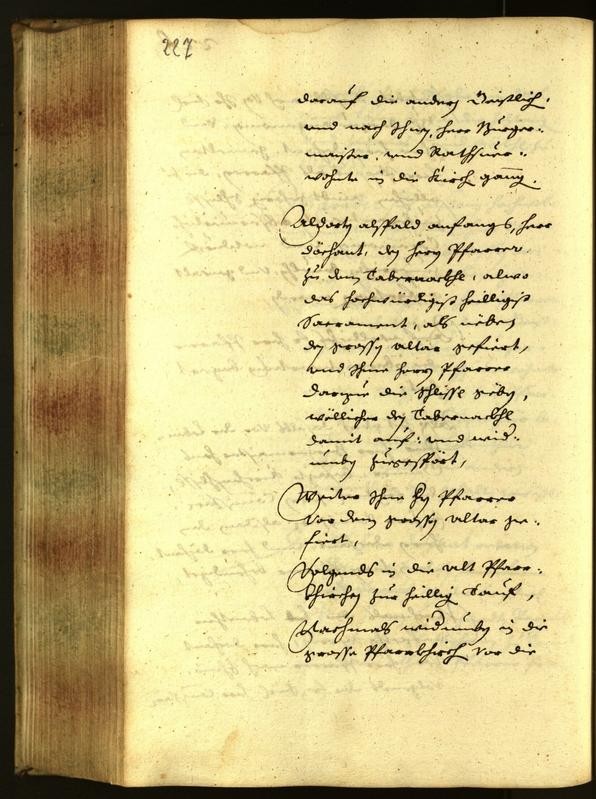 227
darauf die andern Geistlich:
und nach Ihnen, herr Burger-:
maister, und Rathsver-:
wohnte in die Kirch gang.
Aldortn alßpald anfangs, herr
döchant, den herrn Pfarrer
zu dem Tabernackhl, alwo
das hochwürdigist heilligist
Sacrament, als nöben
den grossen altar gefiert,
und Ihme herrn Pfarrer
darzue die Schlissl geben,
wöllicher den Tabernackhl
damit auf: und wid-:
umben zuegespört,
Weiter Ihne Hn Pfarrer
vor dem grossen altar ge-:
fiert,
Volgends in die alt Pfarr-:
khirchen zur heillig Tauf,
Nachmals widumben in die
grosse Pfarrkhirch vor die